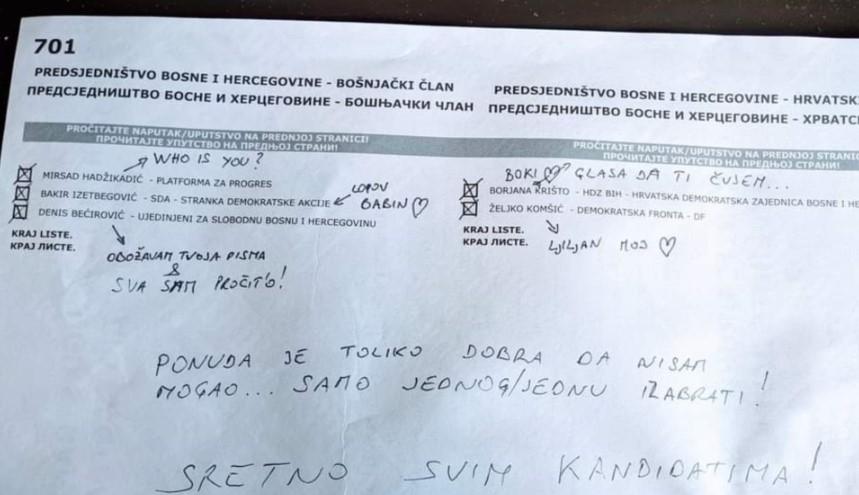 701
PREDSJEDNIŠTVO BOSNE I HERCEGOVINE - BOŠNJAČKI ČLAN
ПРЕДСЈЕДНИШТВО БОСНЕ И ХЕРЦЕГОВИНЕ - БОШЊАЧКИ ЧЛАН
PROČITAJTE NAPUTAK/UPUTSTVO NA PREDNJOJ STRANICI!
ПРОЧИТАЈТЕ УПУТСТВО НА ПРЕДЊОЈ СТРАНИ!
WHO IS YOU?
MIRSAD HADŽIKADIĆ - PLATFORMA ZA PROGRES
LOPOV
BAKIR IZETBEGOVIĆ - SDA - STRANKA DEMOKRATSKE AKCIJE
BABIN ♡
DENIS BEĆIROVIĆ - UJEDINJENI ZA SLOBODNU BOSNU I HERCEGOVINU
KRAJ LISTE.
КРАЈ ЛИСТЕ.
OBOŽAVAM TVOJA PISMA
&
SVA SAM PROČIT'O!
PREDSJEDNIŠTVO BOSNE I HERCEGOVINE - HRVATSKI
ПРЕДСЈЕДНИШТВО БОСНЕ И ХЕРЦЕГОВИНЕ - ХРВАТС
PROČITAJTE NAPUTAK/UPUTSTVO NA PREDNJOJ STRANIC
ПРОЧИТАЈТЕ УПУТСТВО НА ПРЕДЊОЈ СТРАНИ!
BOKI ♡ GLASA DA TI ČUJEM...
BORJANA KRIŠTO - HDZ BIH - HRVATSKA DEMOKRATSKA ZAJEDNICA BOSNE I HE
ŽELJKO KOMŠIĆ - DEMOKRATSKA FRONTA - DF
KRAJ LISTE.
КРАЈ ЛИСТЕ.
LJILJAN MOJ ♡
PONUDA JE TOLIKO DOBRA DA NISAM
MOGAO... SAMO JEDNOG/JEDNU IZABRATI!
SRETNO SVIM KANDIDATIMA!